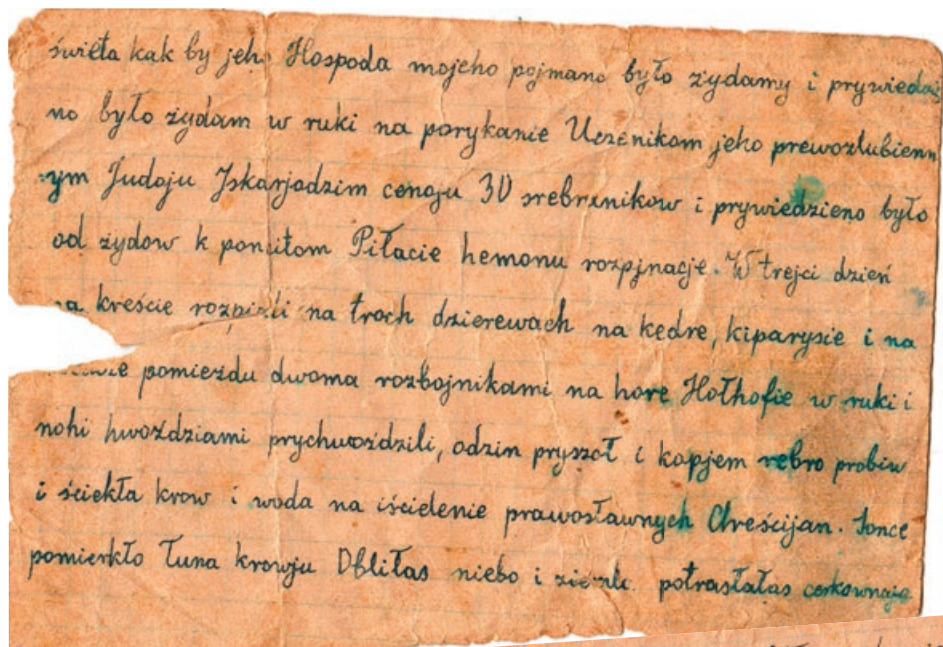 świeta kak by jeho Hospoda mojeho pojmano było żydamy i prywiedzie
no było żydam w ruki na porykanie Uczenikom jeho prewozlubienn
ym Judoju Jskarjodzim cenoju 30 srebrznikow i prywiedzieno było
od żydow k poncitom Piłacie hemonu rozpjnacje. W trejci dzień
na kreście rozpieli na troch dzierewach na kedre, kiparysie i na
pomieżdu dwoma rozbojnikami na hore Hołhofie w ruki i
nohi hwoździami prychwoździli, odzin pryszoł i kopjem rebro probiu
i ściekła krow i woda na iścielenie prawosławnych Chreścijan. Sonce
pomierkło Łuna krowju Obliłas niebo i ziemla potrasłałas cerkownaja